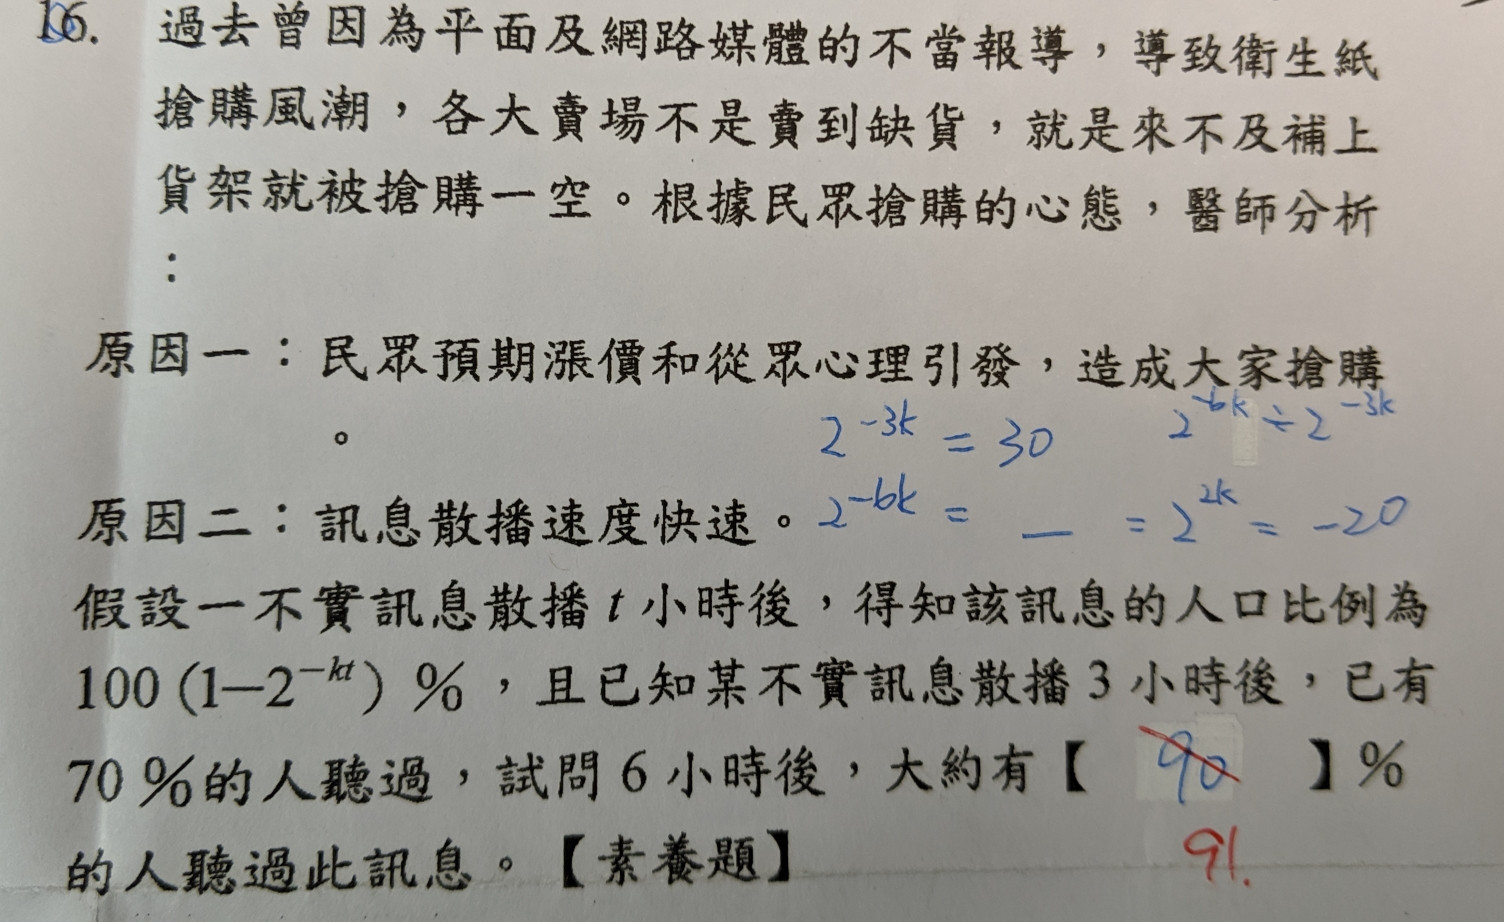 16. 過去曾因為平面及網路媒體的不當報導，導致衛生紙
搶購風潮，各大賣場不是賣到缺貨，就是來不及補上
貨架就被搶購一空。根據民眾搶購的心態，醫師分析
：
原因一：民眾預期漲價和從眾心理引發，造成大家搶購
。
2^{-3k} = 30 2^{-6k} ÷ 2^{-3k}
原因二：訊息散播速度快速。
2^{-6k} = _ = 2^{2k} = -20
假設一不實訊息散播 t 小時後，得知該訊息的人口比例為
100 (1-2^{-kt}) %，且已知某不實訊息散播 3 小時後，已有
70 %的人聽過，試問 6 小時後，大約有【 90 】%
的人聽過此訊息。【素養題】
91.